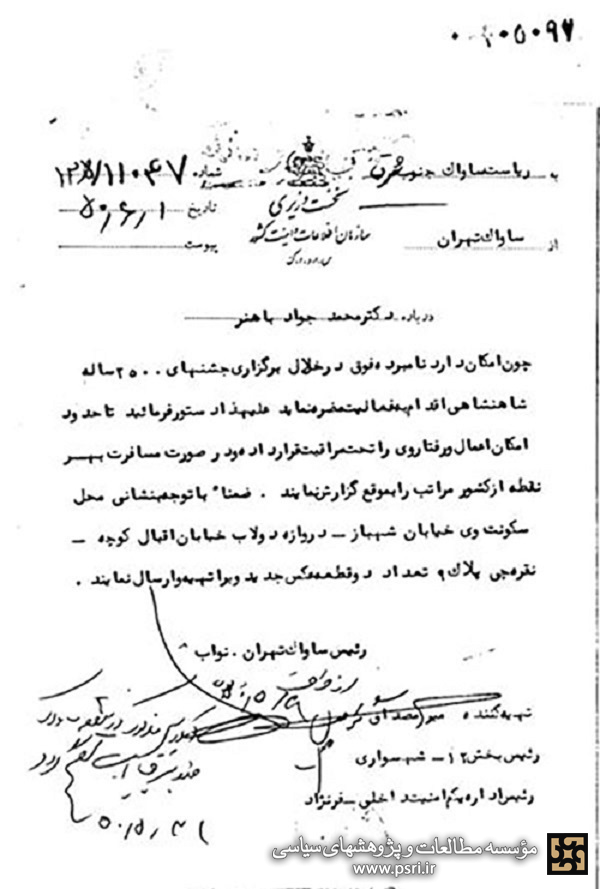 به ریاست ساواک جنوب شرق شماره ۱۲۵/۱۱۰۴۷
نخست وزیری
تاریخ ۵۰/۶/۱
از ساواک تهران
سازمان اطلاعات و امنیت کشور
پیوست
درباره دکتر محمد جواد باهنر
چون امکان دارد نامبرده فوق در خلال برگزاری جشنهای ۲۵۰۰ ساله
شاهنشاهی اقدام به فعالیت مضره نماید علیهذا دستور فرمائید تا حدود
امکان اعمال و رفتار وی را تحت مراقبت قرار داده و در صورت مسافرت بهر
نقطه از کشور مراتب را بموقع گزارش نمایند . ضمناً با توجه بنشانی محل
سکونت وی خیابان شهباز - دروازه دولاب خیابان اقبال کوچه -
نقره‌چی پلاک ۹ تعداد دو قطعه عکس جدید ویرا تهیه و ارسال نمایند .
رئیس ساواک تهران . نواب
تهیه کننده
رئیس بخش ۱۲ - شهسواری
رئیس اداره یکم امنیت داخلی - فرنژاد
مؤسسه مطالعات و پژوهشهای سیاسی
www.psri.ir